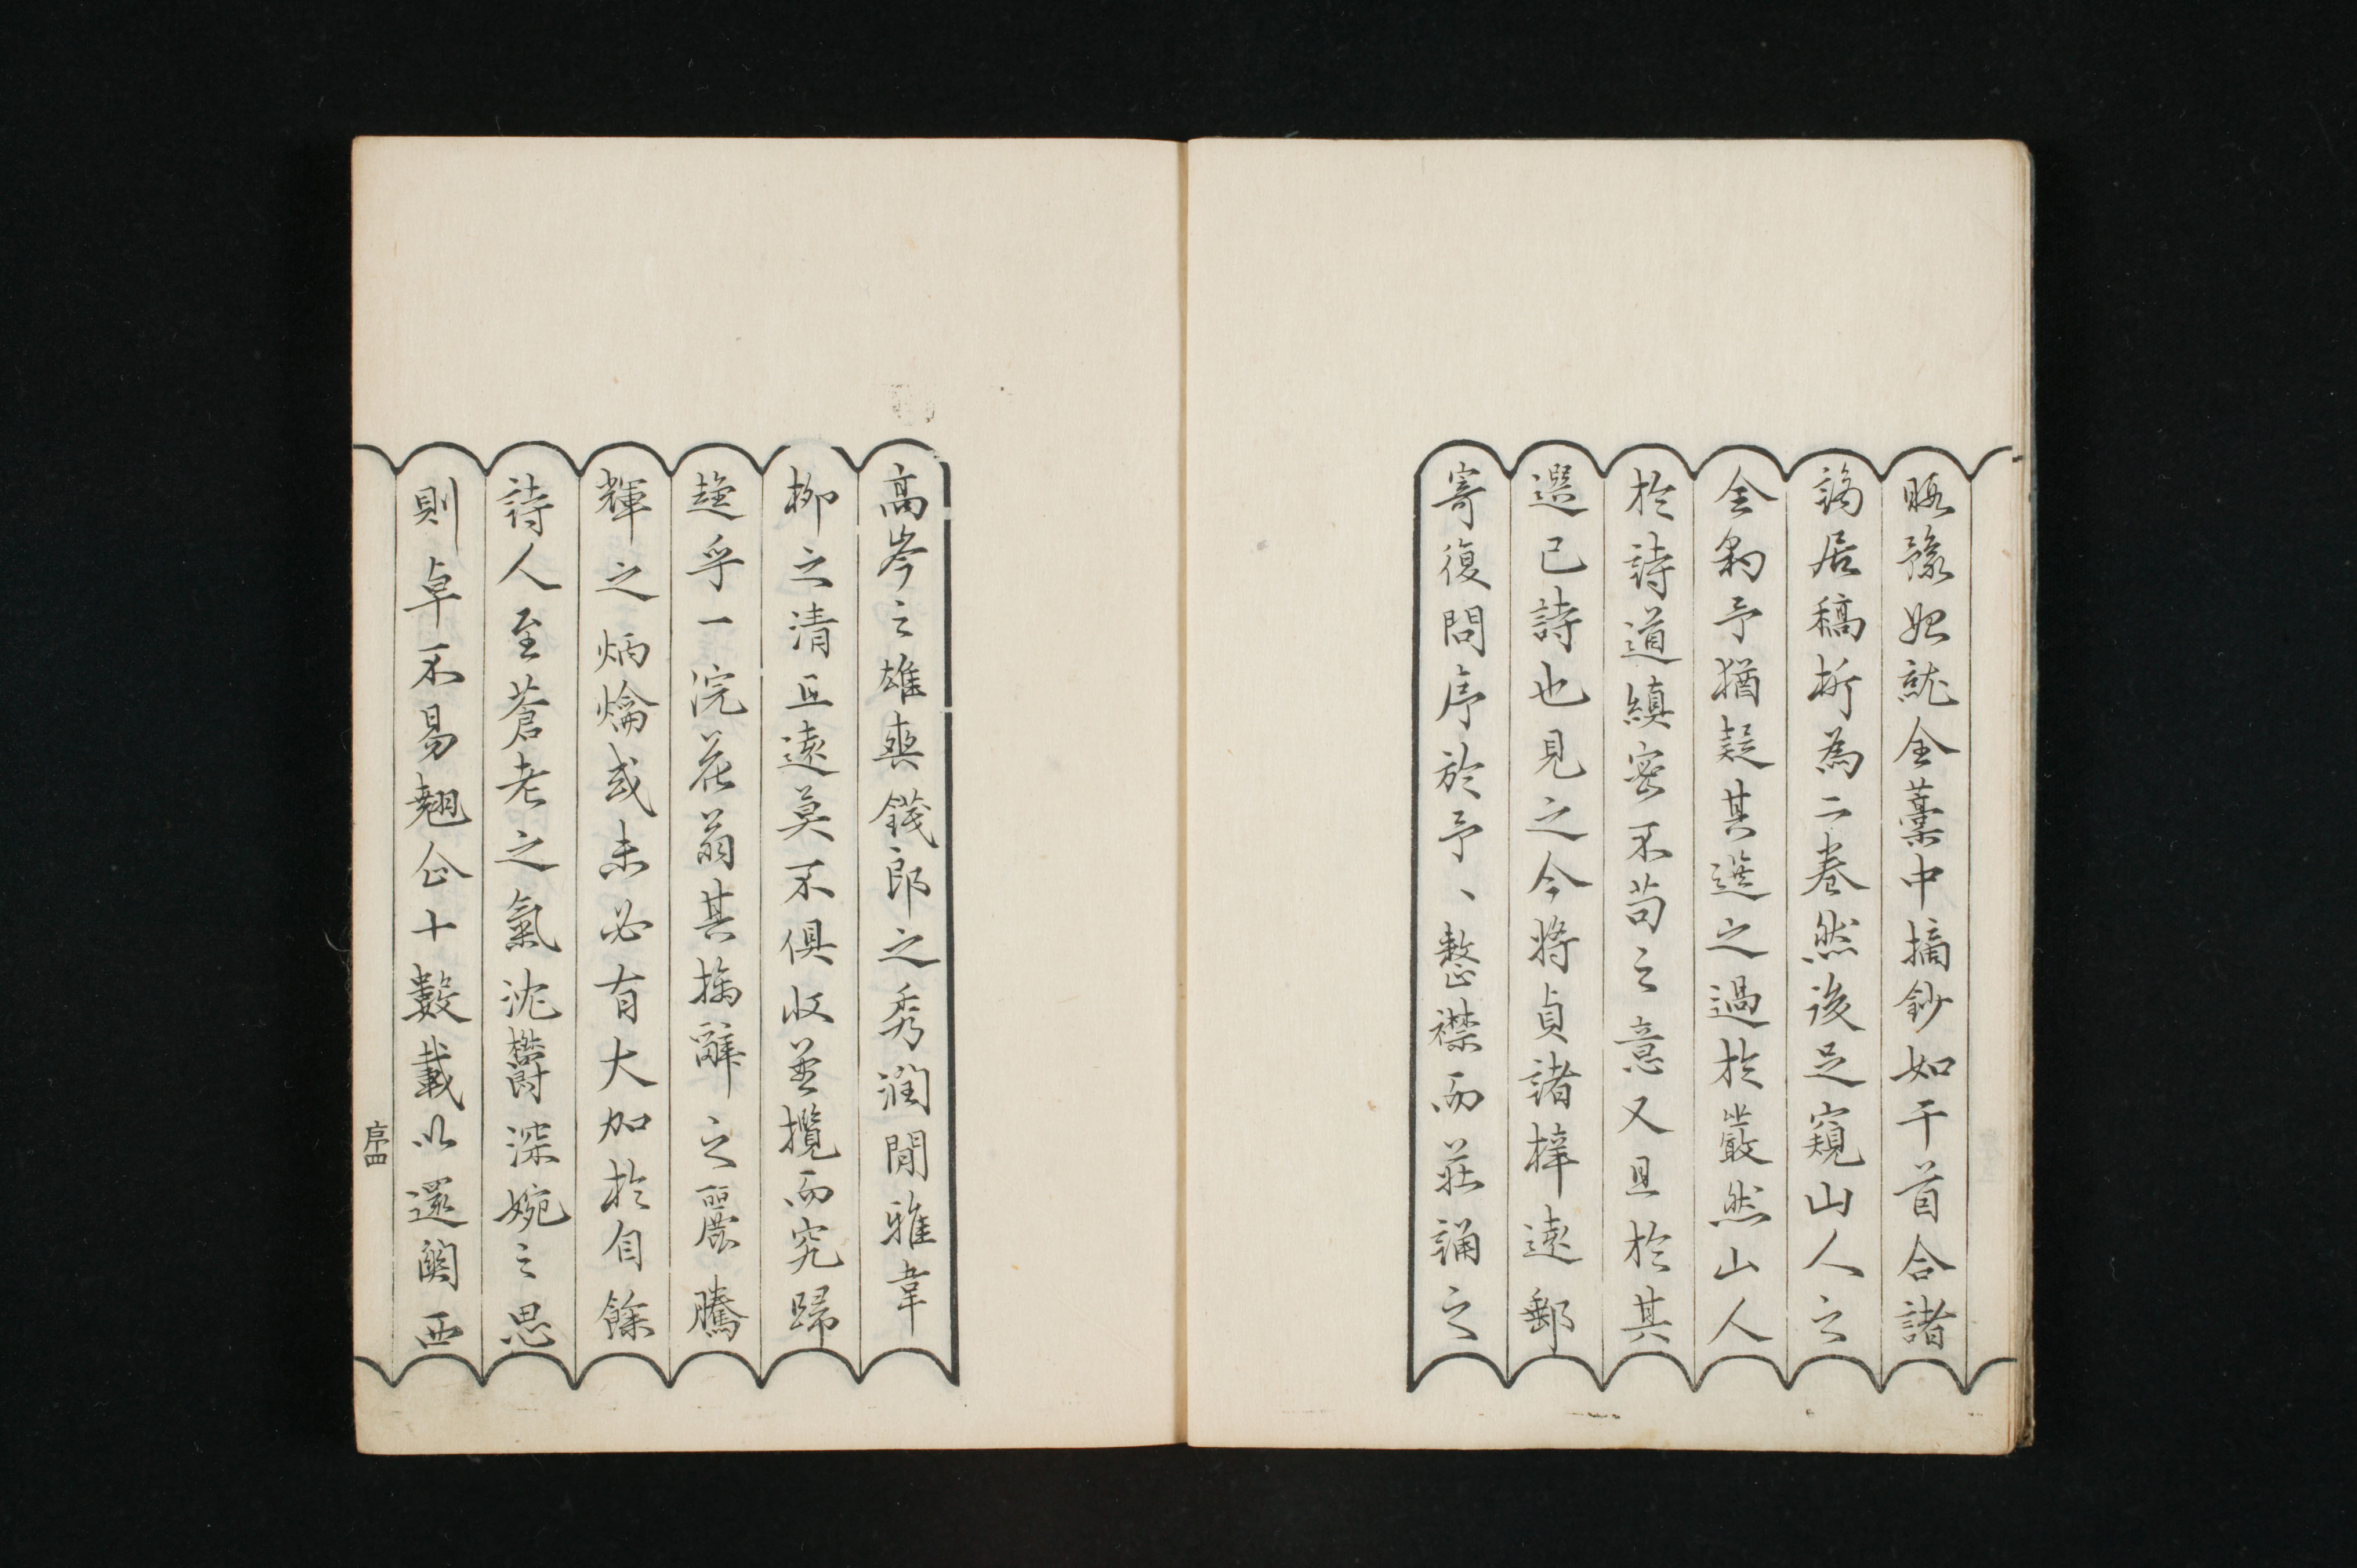 暇豫始就全藁中摘鈔如干首合諸
謫居稿析為二卷然後足窺山人之
全豹予猶疑其選之過於嚴然山人
於詩道縝密不苟之意又且於其
選已詩也見之今將貞諸梓遠郵
寄復問序於予、整襟而莊誦之
高岑之雄爽錢郎之秀潤閒雅韋
柳之清五遠莫不俱收並攬而究歸
趣乎一浣花翁其摛辭之麗騰
輝之炳爚或未必有大加於自餘
詩人至蒼老之氣沈鬱深婉之思
則卓不易翹企十數載以還関西
序四